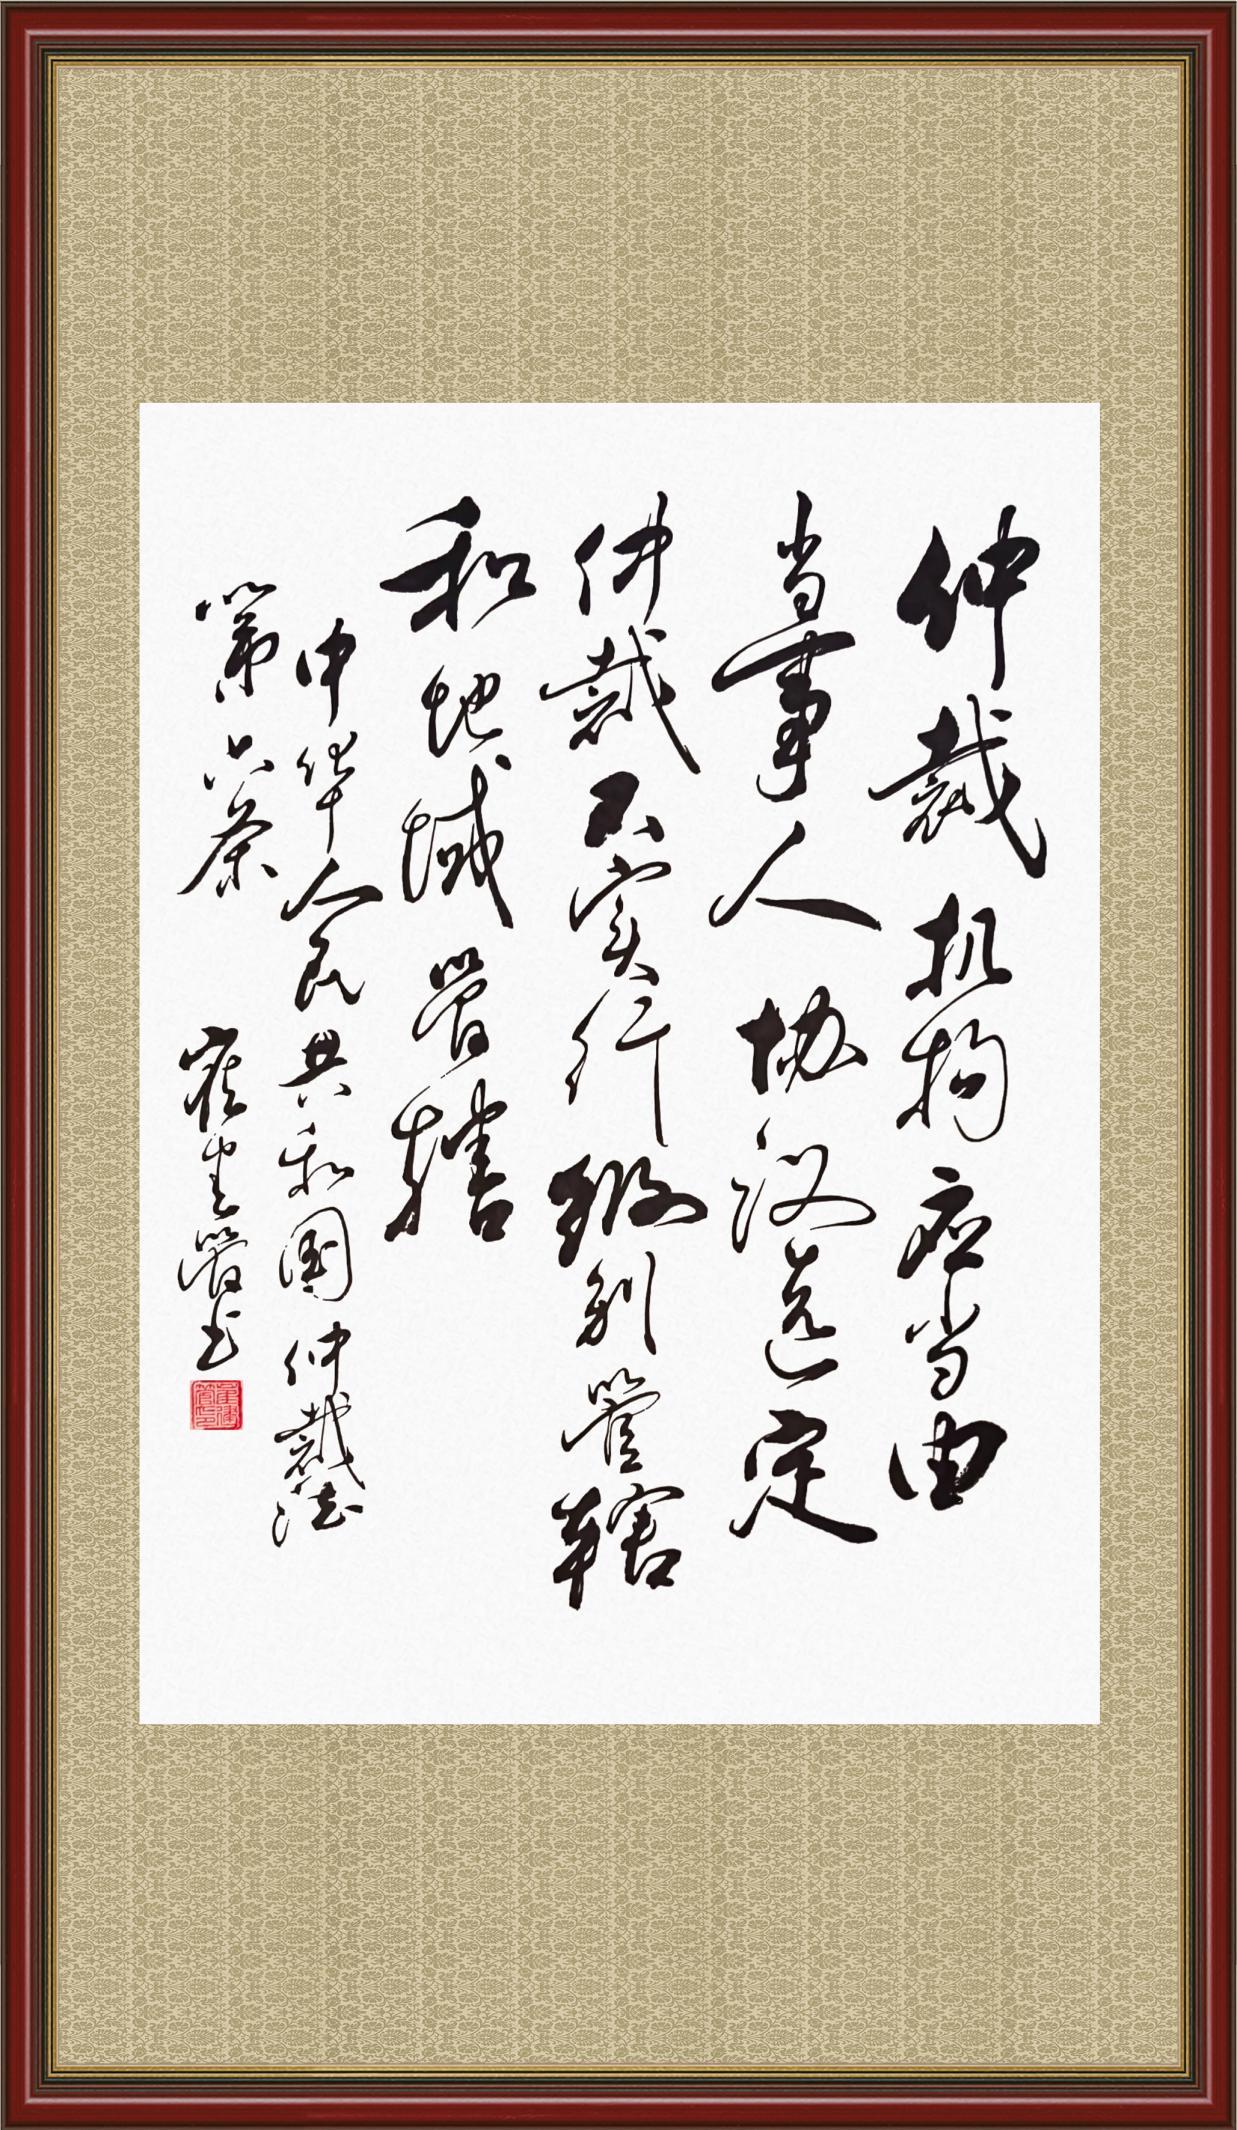 仲裁机构应当由
当事人协议选定
仲裁不实行级别管辖
和地域管辖
中华人民共和国仲裁法
第六条
管书